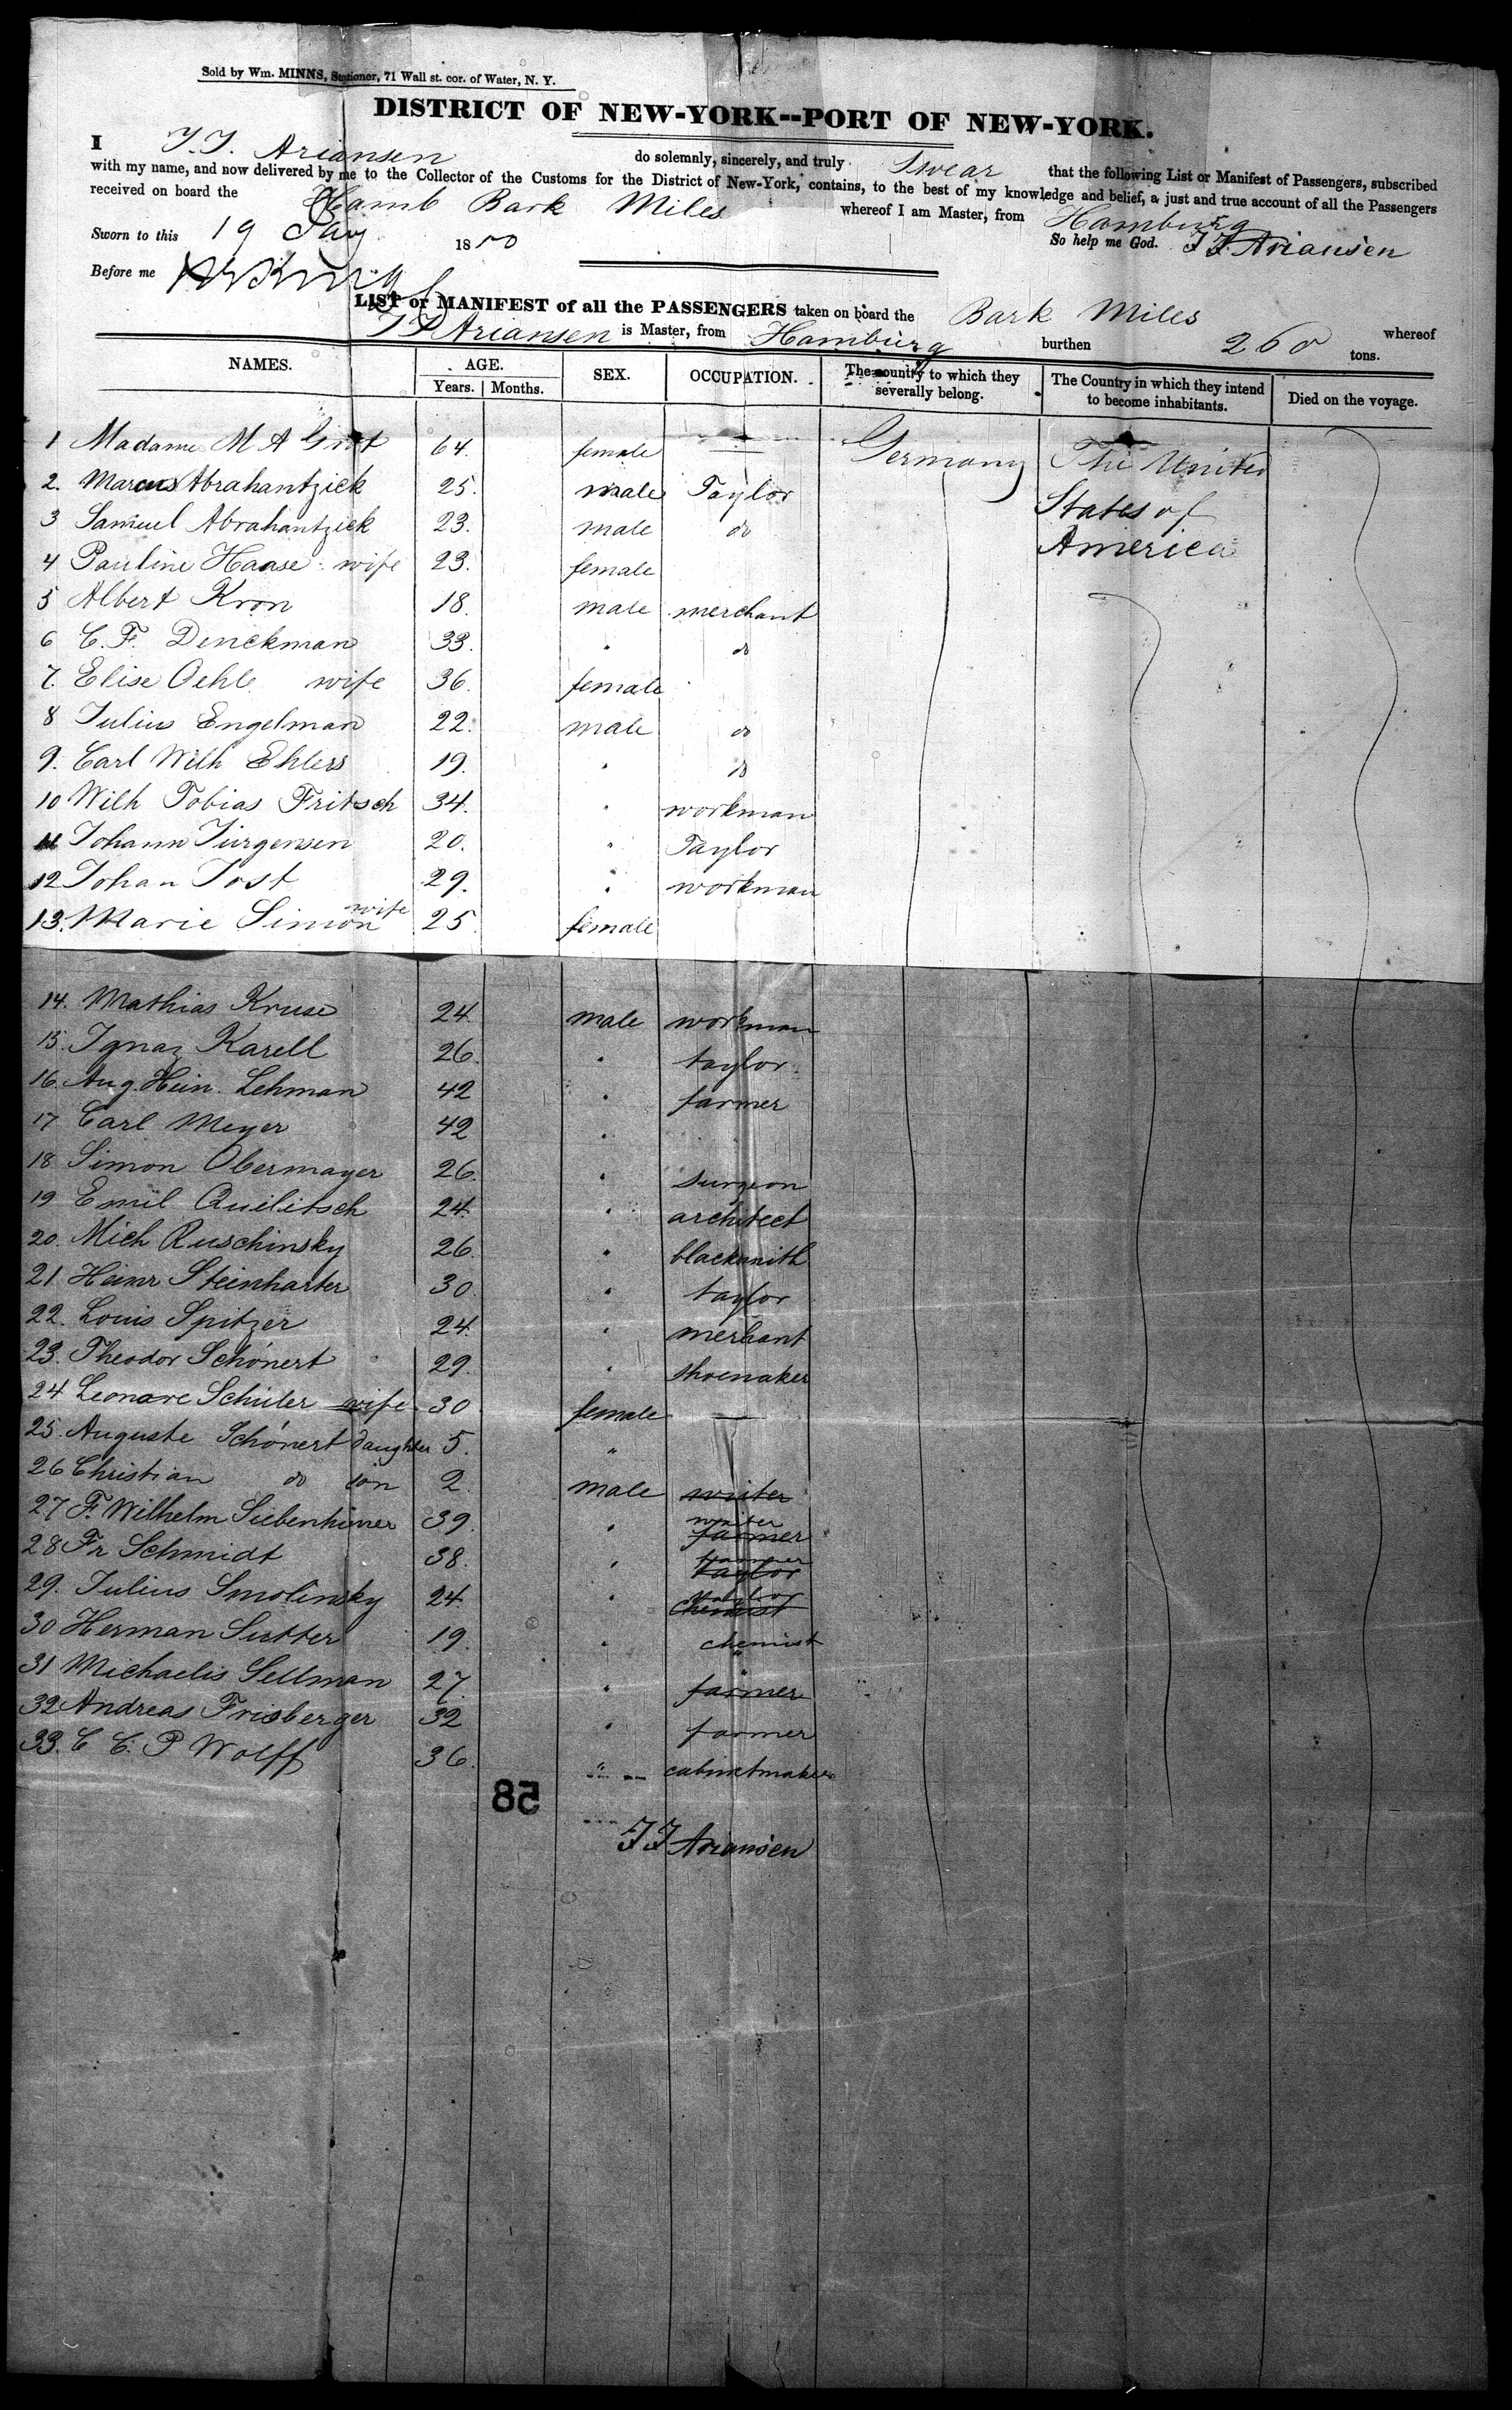 Sold by Wm. MINNS, Stationer, 71 Wall st. cor. of Water, N. Y.
DISTRICT OF NEW-YORK--PORT OF NEW-YORK.
I Ariansen do solemnly, sincerely, and truly Swear that the following List or Manifest of Passengers, subscribed
with my name, and now delivered by me to the Collector of the Customs for the District of New-York, contains, to the best of my knowledge and belief, a just and true account of all the Passengers
received on board the Hamb Bark Miles whereof I am Master, from Hamburg
Sworn to this 19 1850 So help me God. Ariansen
Before me
LIST or MANIFEST of all the PASSENGERS taken on board the Bark Miles whereof
Ariansen is Master, from Hamburg burthen 260 tons.
NAMES. AGE. SEX. OCCUPATION. The country to which they severally belong. The Country in which they intend to become inhabitants. Died on the voyage.
Years. Months.
1 Madame M A 64. female — Germany The United
2. Marcus Abrahantzick 25. male Taylor States of
3 Samuel Abrahantzick 23. male do America
4 Pauline Haase wife 23. female
5 Albert Kron 18. male merchant
6 C. F. Denckman 33. " do
7. Elise Oehle wife 36. female
8 Julius Engelman 22. male do
9. Carl Wilh Ehlers 19. " do
10 Wilh Tobias Fritsch 34. " workman
11 Johann Jürgensen 20. " Taylor
12 Johan Jost 29. " workman
13. Marie Simon wife 25 female
14. Mathias Kruse 24. male workman
15. Ignaz Karell 26. " taylor
16. Aug. Hein. Lehman 42 " farmer
17 Carl Meyer 42 " "
18 Simon Obermayer 26. " surgeon
19 Emil Quilitsch 24. " architect
20. Mich Ruschinsky 26. " blacksmith
21. Heinr Steinharter 30 " taylor
22. Louis Spitzer 24. " merhant
23. Theodor Schönert 29. " shoemaker
24 Leonore Schüler wife 30 female —
25. Auguste Schönert daughter 5. "
26 Christian do son 2. male writer
27 F. Wilhelm Siebenhüner 39. " writer farmer
28 Fr Schmidt 38. " farmer taylor
29. Julius Smolinsky 24 " taylor chemist
30 Herman Sutter 19. " chemist
31 Michaelis Sellman 27. " " farmer
32 Andreas Frisberger 32 " farmer
33. C C. P Wolff 36. " cabinetmaker
58
Ariansen